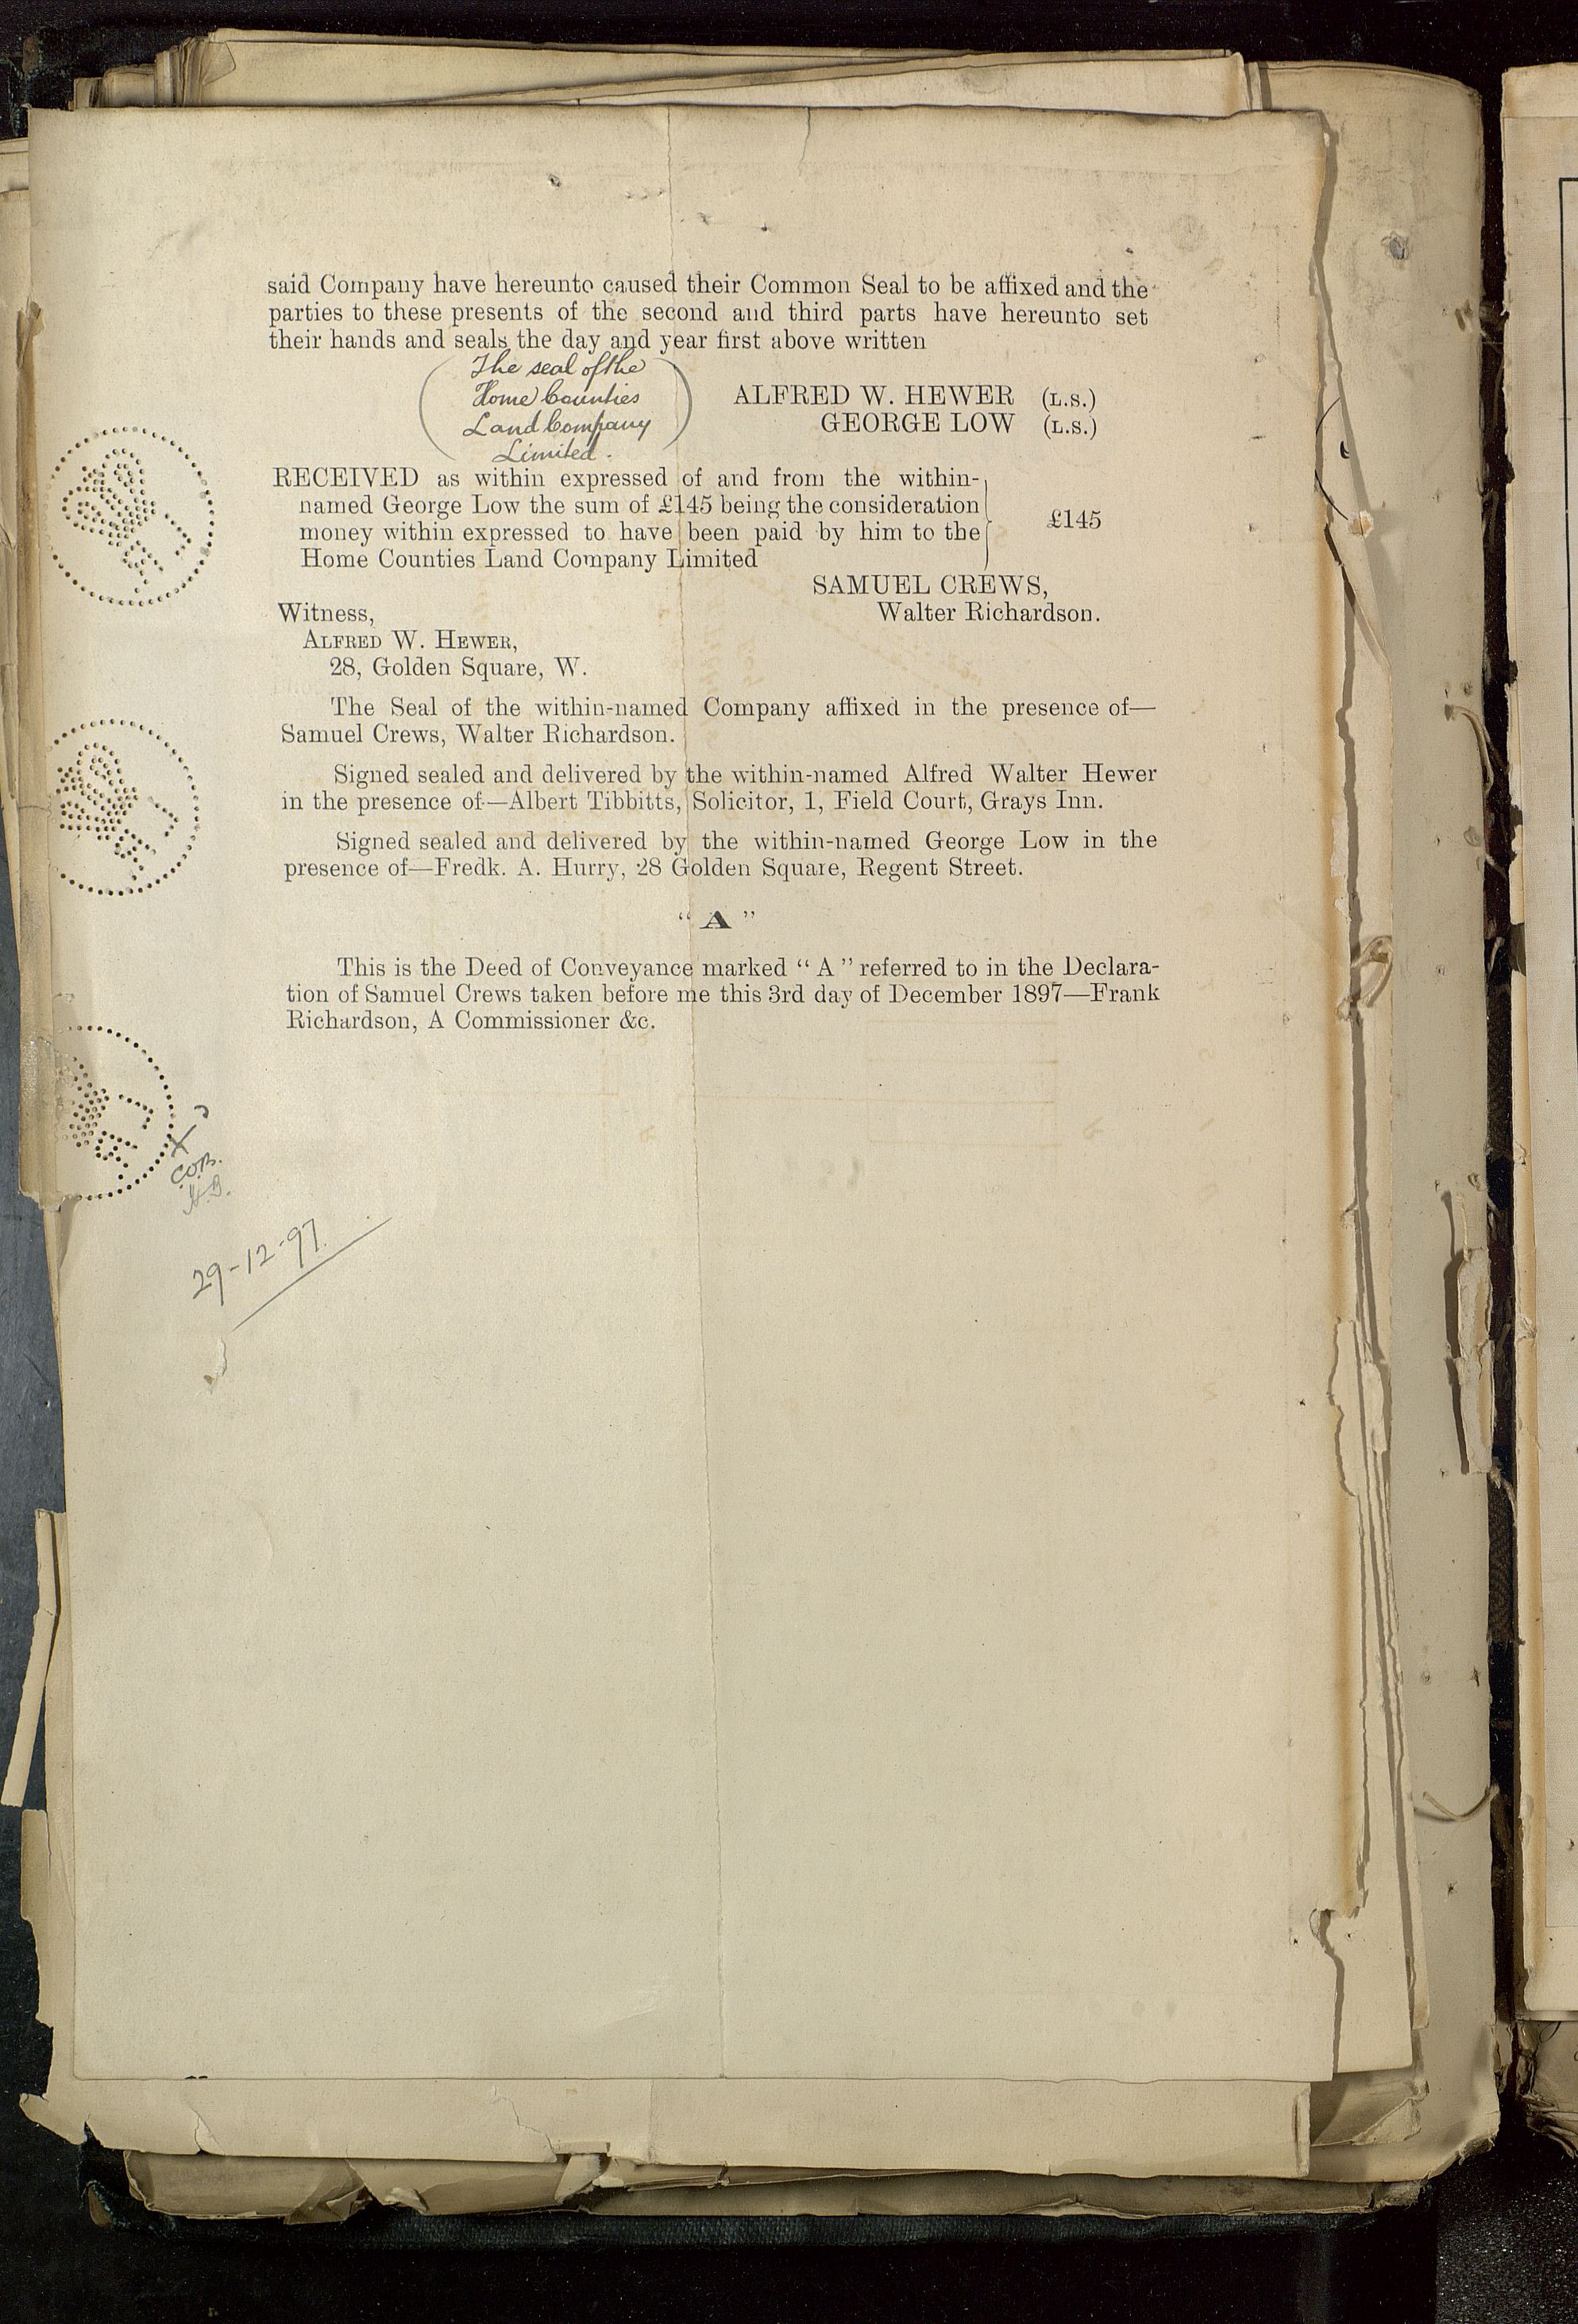 said Company have hereunto caused their Common Seal to be affixed and the
parties to these presents of the second and third parts have hereunto set
their hands and seals the day and year first above written
The seal of the
Home Counties
Land Company
Limited.
ALFRED W. HEWER (L.S.)
GEORGE LOW (L.S.)
RECEIVED as within expressed of and from the within-
named George Low the sum of £145 being the consideration
money within expressed to have been paid by him to the
Home Counties Land Company Limited
£145
SAMUEL CREWS,
Walter Richardson.
Witness,
ALFRED W. HEWER,
28, Golden Square, W.
The Seal of the within-named Company affixed in the presence of—
Samuel Crews, Walter Richardson.
Signed sealed and delivered by the within-named Alfred Walter Hewer
in the presence of—Albert Tibbitts, Solicitor, 1, Field Court, Grays Inn.
Signed sealed and delivered by the within-named George Low in the
presence of—Fredk. A. Hurry, 28 Golden Square, Regent Street.
“A”
This is the Deed of Conveyance marked “A” referred to in the Declara-
tion of Samuel Crews taken before me this 3rd day of December 1897—Frank
Richardson, A Commissioner &c.
29-12-97